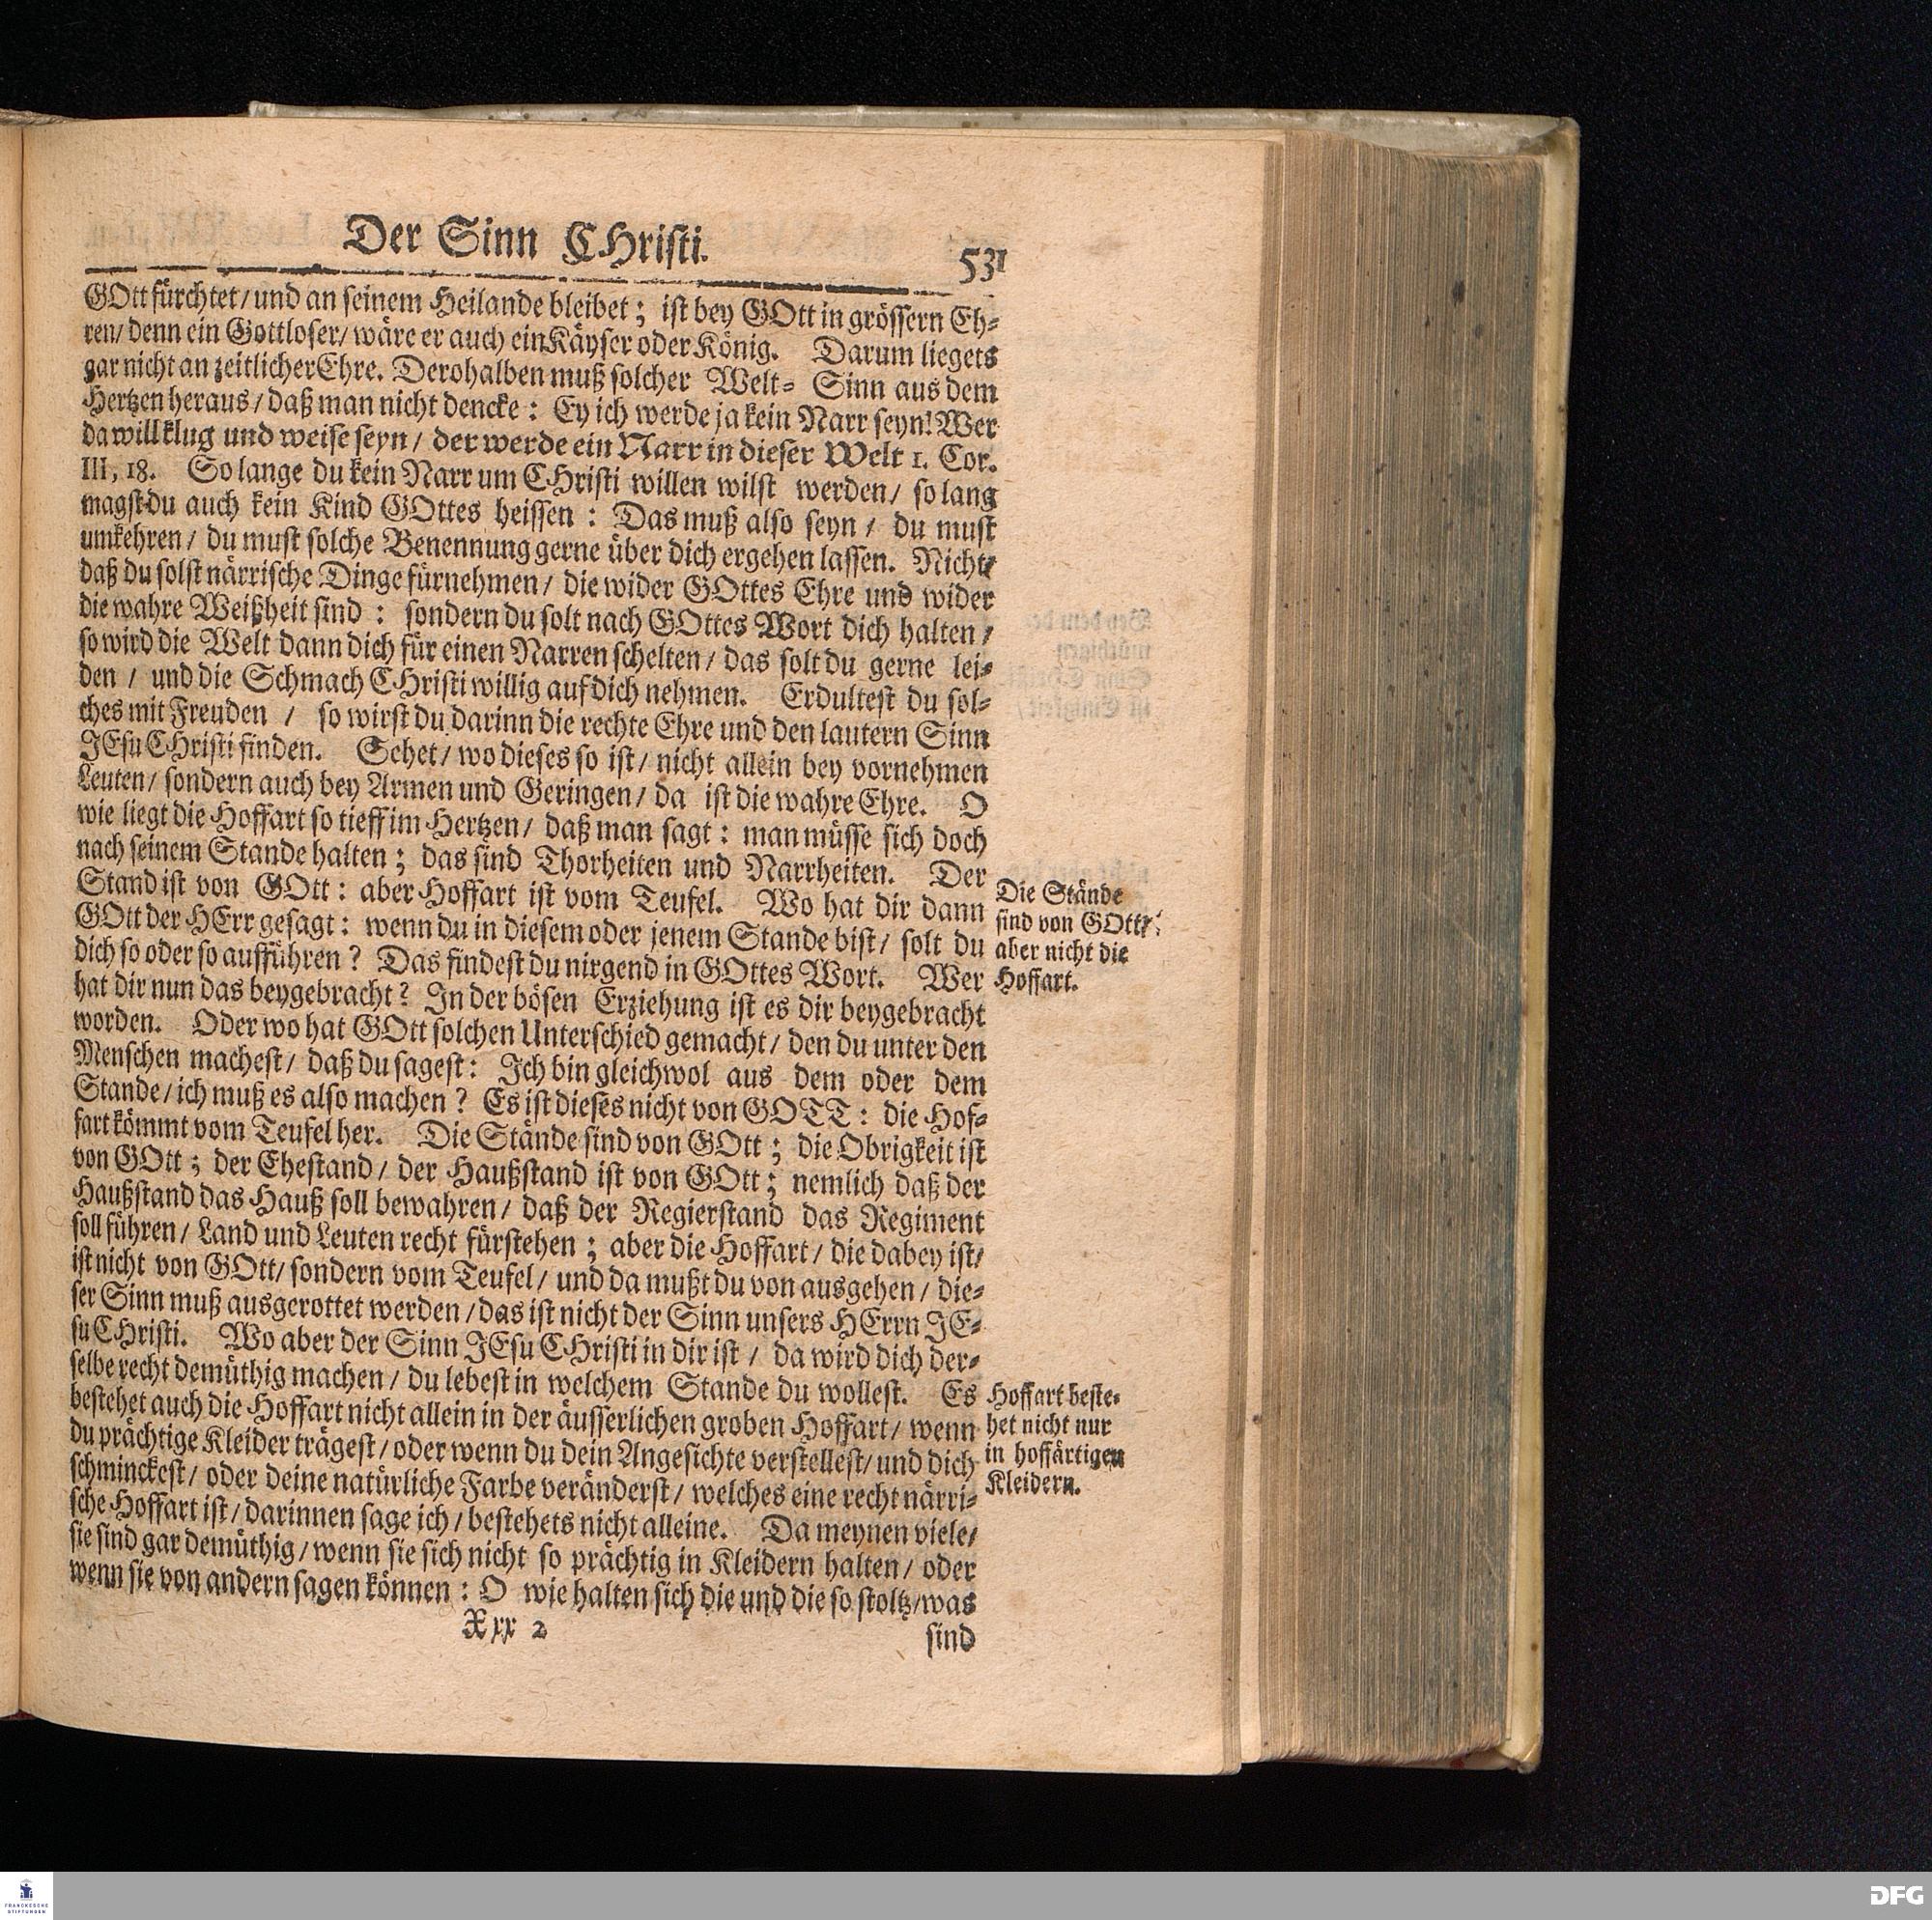 Der Sinn CHristi. 531
GOtt fürchtet/ und an seinem Heilande bleibet; ist bey GOtt in grössern Eh-
ren/ denn ein Gottloser/ wäre er auch ein Käyser oder König. Darum liegets
gar nicht an zeitlicher Ehre. Derohalben muß solcher Welt- Sinn aus dem
Hertzen heraus/ daß man nicht dencke: Ey ich werde ja kein Narr seyn! Wer
da will klug und weise seyn/ der werde ein Narr in dieser Welt 1. Cor.
III, 18. So lange du kein Narr um CHristi willen wilst werden/ so lang
magst du auch kein Kind GOttes heissen: Das muß also seyn/ du must
umkehren/ du must solche Benennung gerne über dich ergehen lassen. Nicht/
daß du solst närrische Dinge fürnehmen/ die wider GOttes Ehre und wider
die wahre Weißheit sind: sondern du solt nach GOttes Wort dich halten/
so wird die Welt dann dich für einen Narren schelten/ das solt du gerne lei-
den/ und die Schmach CHristi willig auf dich nehmen. Erdultest du sol-
ches mit Freuden/ so wirst du darinn die rechte Ehre und den lautern Sinn
JEsu CHristi finden. Sehet/ wo dieses so ist/ nicht allein bey vornehmen
Leuten/ sondern auch bey Armen und Geringen/ da ist die wahre Ehre. O
wie liegt die Hoffart so tieff im Hertzen/ daß man sagt: man müsse sich doch
nach seinem Stande halten; das sind Thorheiten und Narrheiten. Der
Stand ist von GOtt: aber Hoffart ist vom Teufel. Wo hat dir dann
GOtt der HErr gesagt: wenn du in diesem oder jenem Stande bist/ solt du
dich so oder so aufführen? Das findest du nirgend in GOttes Wort. Wer
hat dir nun das beygebracht? In der bösen Erziehung ist es dir beygebracht
worden. Oder wo hat GOtt solchen Unterschied gemacht/ den du unter den
Menschen machest/ daß du sagest: Ich bin gleichwol aus dem oder dem
Stande/ ich muß es also machen? Es ist dieses nicht von GOTT: die Hof-
fart kömmt vom Teufel her. Die Stände sind von GOtt; die Obrigkeit ist
von GOtt; der Ehestand/ der Haußstand ist von GOtt; nemlich daß der
Haußstand das Hauß soll bewahren/ daß der Regierstand das Regiment
soll führen/ Land und Leuten recht fürstehen; aber die Hoffart/ die dabey ist/
ist nicht von GOtt/ sondern vom Teufel/ und da mußt du von ausgehen/ die-
ser Sinn muß ausgerottet werden/ das ist nicht der Sinn unsers HErrn JE-
su CHristi. Wo aber der Sinn JEsu CHristi in dir ist/ da wird dich der-
selbe recht demüthig machen/ du lebest in welchem Stande du wollest. Es
bestehet auch die Hoffart nicht allein in der äusserlichen groben Hoffart/ wenn
du prächtige Kleider trägest/ oder wenn du dein Angesichte verstellest/ und dich
schminckest/ oder deine natürliche Farbe veränderst/ welches eine recht närri-
sche Hoffart ist/ darinnen sage ich/ bestehets nicht alleine. Da meynen viele/
sie sind gar demüthig/ wenn sie sich nicht so prächtig in Kleidern halten/ oder
wenn sie von andern sagen können: O wie halten sich die und die so stoltz/ was
Xxx 2 sind
Die Stände
sind von GOtt/
aber nicht die
Hoffart.
Hoffart beste-
het nicht nur
in hoffärtigen
Kleidern.
FRANCKESCHE
STIFTUNGEN
DFG